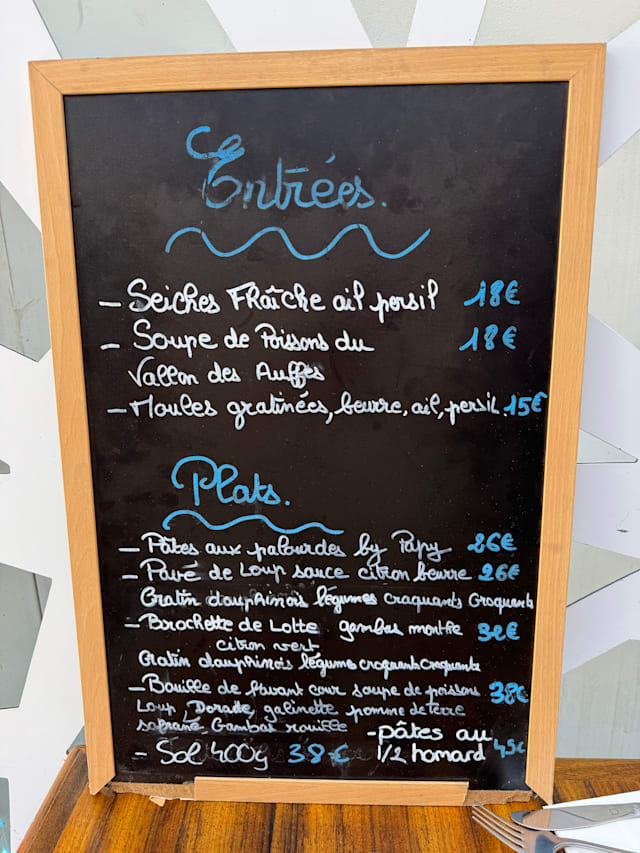 Entrées.
- Seiches Fraîche ail persil 18€
- Soupe de Poissons du 18€
Vallon des Auffes
- Moules gratinées, beurre, ail, persil 15€
Plats.
- Pâtes aux palourdes by Papy 26€
- Pavé de Loup sauce citron beurre 26€
Gratin dauphinois légumes craquants Croquants
- Brochette de Lotte gambas menthe 32€
citron vert
Gratin dauphinois légumes croquants croquants
- Bouille de soupe de poissons 38€
Loup Dorade, galinette, pomme de terre
safrané, Gambas rouille
- pâtes au
1/2 homard 45€
- Sol 400g 38€